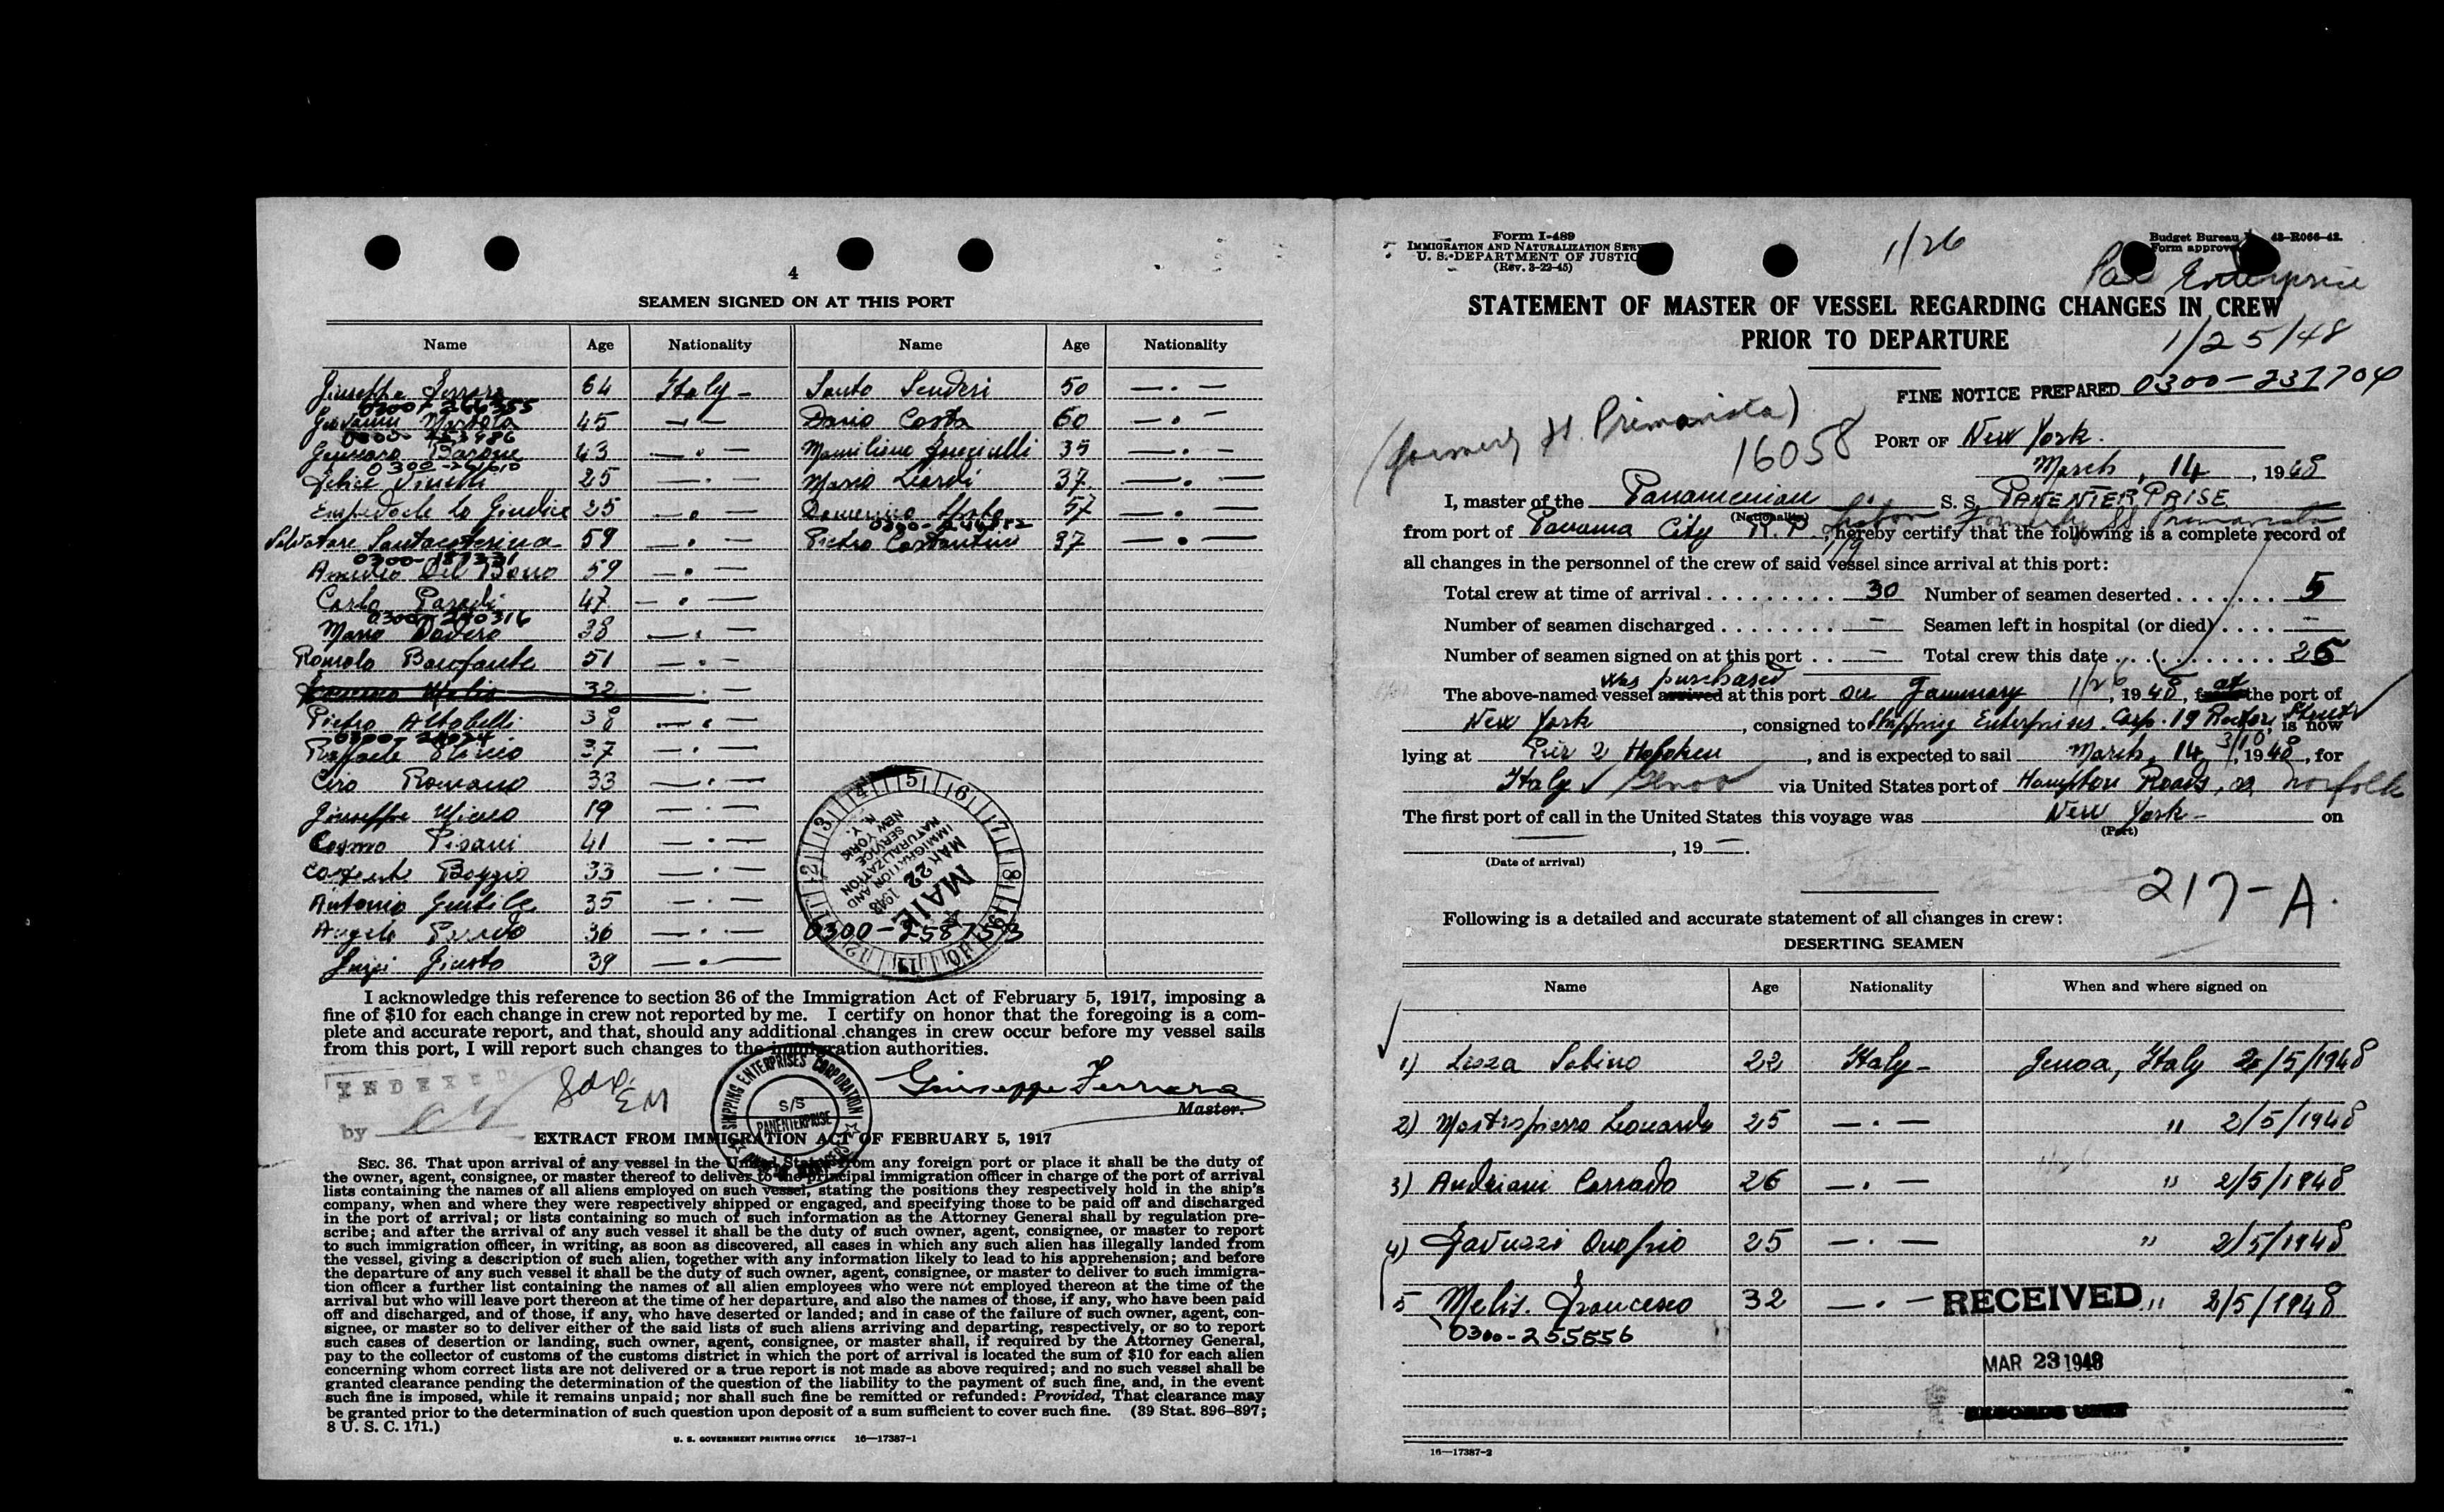 4
SEAMEN SIGNED ON AT THIS PORT
Name Age Nationality Name Age Nationality
Giuseppe Ferrara 64 Italy - Santo 50 — . —
0300-264355
Giovanni 45 — — Dario Costa 60 — . —
43 — . — 35 — . —
0300-261610
Felice 25 — . — Mario Leardi 37 — . —
Empedocle Lo Giudice 25 — . — 57 — . —
0300-244512
Salvatore Santacaterina 59 — . — Pietro Costantini 37 — . —
0300-187331
Amedeo Del Bono 59 — . —
Carlo Parodi 47 — . —
0300-240316
Mario Dodero 38 — . —
Romolo Bonfante 51 — . —
32 . —
Pietro Altobelli 38 — . —
Raffaele 37 — . —
Ciro Romano 33 — . —
Giuseppe 19 — . —
Cosmo Pisani 41 — . —
Boggio 33 — . —
Antonio Gentile 35 — . —
Angelo 36 — . —
0300-258753
Luigi Giusto 39 — . —
1 2 3 4 5 6 7 8 9 10 11 12
IMMIGRATION AND NATURALIZATION SERVICE NEW YORK N. Y.
MAIL
MAR 22 1948
I acknowledge this reference to section 36 of the Immigration Act of February 5, 1917, imposing a
fine of $10 for each change in crew not reported by me. I certify on honor that the foregoing is a com-
plete and accurate report, and that, should any additional changes in crew occur before my vessel sails
from this port, I will report such changes to the immigration authorities.
INDEXED
by
EM
SHIPPING ENTERPRISES CORPORATION
S/S
PANENTERPRISE
Giuseppe Ferrara
Master.
EXTRACT FROM IMMIGRATION ACT OF FEBRUARY 5, 1917
SEC. 36. That upon arrival of any vessel in the United States from any foreign port or place it shall be the duty of
the owner, agent, consignee, or master thereof to deliver to the principal immigration officer in charge of the port of arrival
lists containing the names of all aliens employed on such vessel, stating the positions they respectively hold in the ship's
company, when and where they were respectively shipped or engaged, and specifying those to be paid off and discharged
in the port of arrival; or lists containing so much of such information as the Attorney General shall by regulation pre-
scribe; and after the arrival of any such vessel it shall be the duty of such owner, agent, consignee, or master to report
to such immigration officer, in writing, as soon as discovered, all cases in which any such alien has illegally landed from
the vessel, giving a description of such alien, together with any information likely to lead to his apprehension; and before
the departure of any such vessel it shall be the duty of such owner, agent, consignee, or master to deliver to such immigra-
tion officer a further list containing the names of all alien employees who were not employed thereon at the time of the
arrival but who will leave port thereon at the time of her departure, and also the names of those, if any, who have been paid
off and discharged, and of those, if any, who have deserted or landed; and in case of the failure of such owner, agent, con-
signee, or master so to deliver either of the said lists of such aliens arriving and departing, respectively, or so to report
such cases of desertion or landing, such owner, agent, consignee, or master shall, if required by the Attorney General,
pay to the collector of customs of the customs district in which the port of arrival is located the sum of $10 for each alien
concerning whom correct lists are not delivered or a true report is not made as above required; and no such vessel shall be
granted clearance pending the determination of the question of the liability to the payment of such fine, and, in the event
such fine is imposed, while it remains unpaid; nor shall such fine be remitted or refunded: Provided, That clearance may
be granted prior to the determination of such question upon deposit of a sum sufficient to cover such fine. (39 Stat. 896-897;
8 U. S. C. 171.)
U. S. GOVERNMENT PRINTING OFFICE 16—17387-1
Form I-489
IMMIGRATION AND NATURALIZATION
U. S. DEPARTMENT OF JUSTIC
(Rev. 3-22-45)
1/26
Budget Bureau 43-R066-42.
Form approve
Enterprise
STATEMENT OF MASTER OF VESSEL REGARDING CHANGES IN CREW
PRIOR TO DEPARTURE
1/25/48
FINE NOTICE PREPARED 0300-237704
(formerly St. Primavista)
16058
PORT OF New York.
March, 14, 1948
I, master of the Panamenian S. S. PANENTERPRISE
(Nationality)
Lisbon Formerly SS Primavista
from port of Panama City R.P., hereby certify that the following is a complete record of
1/9
all changes in the personnel of the crew of said vessel since arrival at this port:
Total crew at time of arrival . . . . . . . . . 30 Number of seamen deserted . . . . . . . 5
Number of seamen discharged . . . . . . . — Seamen left in hospital (or died) . . . . —
Number of seamen signed on at this port . . — Total crew this date . . . . . . . . . . . 25
was purchased
The above-named vessel arrived at this port on January 1/26, 1948, from at the port of
New York, consigned to Shipping Enterprises Corp. 19 Rector Street, is now
lying at Pier 2 Hoboken, and is expected to sail March, 14 3/10, 1948, for
Italy Genoa via United States port of Hampton Roads, or Norfolk
The first port of call in the United States this voyage was New York - on
(Port)
, 19 —.
(Date of arrival)
217-A.
Following is a detailed and accurate statement of all changes in crew:
DESERTING SEAMEN
Name Age Nationality When and where signed on
1) Sabino 22 Italy - Genoa, Italy 2/5/1948
2) Mastropierro Leonardo 25 — . — " 2/5/1948
3) Andriani Corrado 26 — . — " 2/5/1948
4) Gavuzzi Onofrio 25 — . — " 2/5/1948
5 Melis. Francesco 32 — . — " 2/5/1948
0300-255556
RECEIVED
MAR 23 1948
RECORDS UNIT
16—17387-2